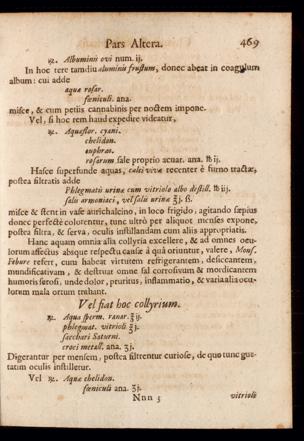 Pars Altera. 469
℞. Albuminis ovi num. ij.
In hoc tere tamdiu aluminis fruſtum, donec abeat in coagulum
album: cui adde
aquæ roſar.
fœniculi. ana.
miſce, & cum petiis cannabinis per noctem impone.
Vel, ſi hoc rem haud expedire videatur,
℞. Aquæflor. cyani.
chelidon.
euphraſ.
roſarum ſale proprio acuar. ana. ℔ ij.
Haſce ſuperfunde aquas, calci vivæ recenter è furno tractæ,
poſtea filtratis adde
Phlegmatis urinæ cum vitriolo albo deſtill. ℔ iij.
ſalis armoniaci, vel ſalis urinæ ʒj. ß.
miſce & ſtent in vaſe aurichalcino, in loco frigido, agitando ſæpius
donec perfectè colorentur, tunc ultrò per aliquot menſes expone,
poſtea filtra, & ſerva, oculis inſtillandam cum aliis appropriatis.
Hanc aquam omnia alia collyria excellere, & ad omnes ocu-
lorum affectus absque reſpectu cauſæ à quâ oriuntur, valere, Monſ.
Febure refert, cum habeat virtutem refrigerantem, deſiccantem,
mundificativam, & deſtruat omne ſal corroſivum & mordicantem
humoris ſeroſi, unde dolor, pruritus, inflammatio, & varia alia ocu-
lorum mala ortum trahant.
Vel fiat hoc collyrium.
℞. Aquæ ſperm. ranar. ℥ ij.
phlegmat. vitrioli ℥ j.
ſacchari Saturni.
croci metall. ana. ʒj.
Digerantur per menſem, poſtea filtrentur curioſe, de quo tunc gut-
tatim oculis inſtilletur.
Vel ℞. Aquæ chelidon.
fœniculi ana. ʒj.
Nnn 3 vitrioli